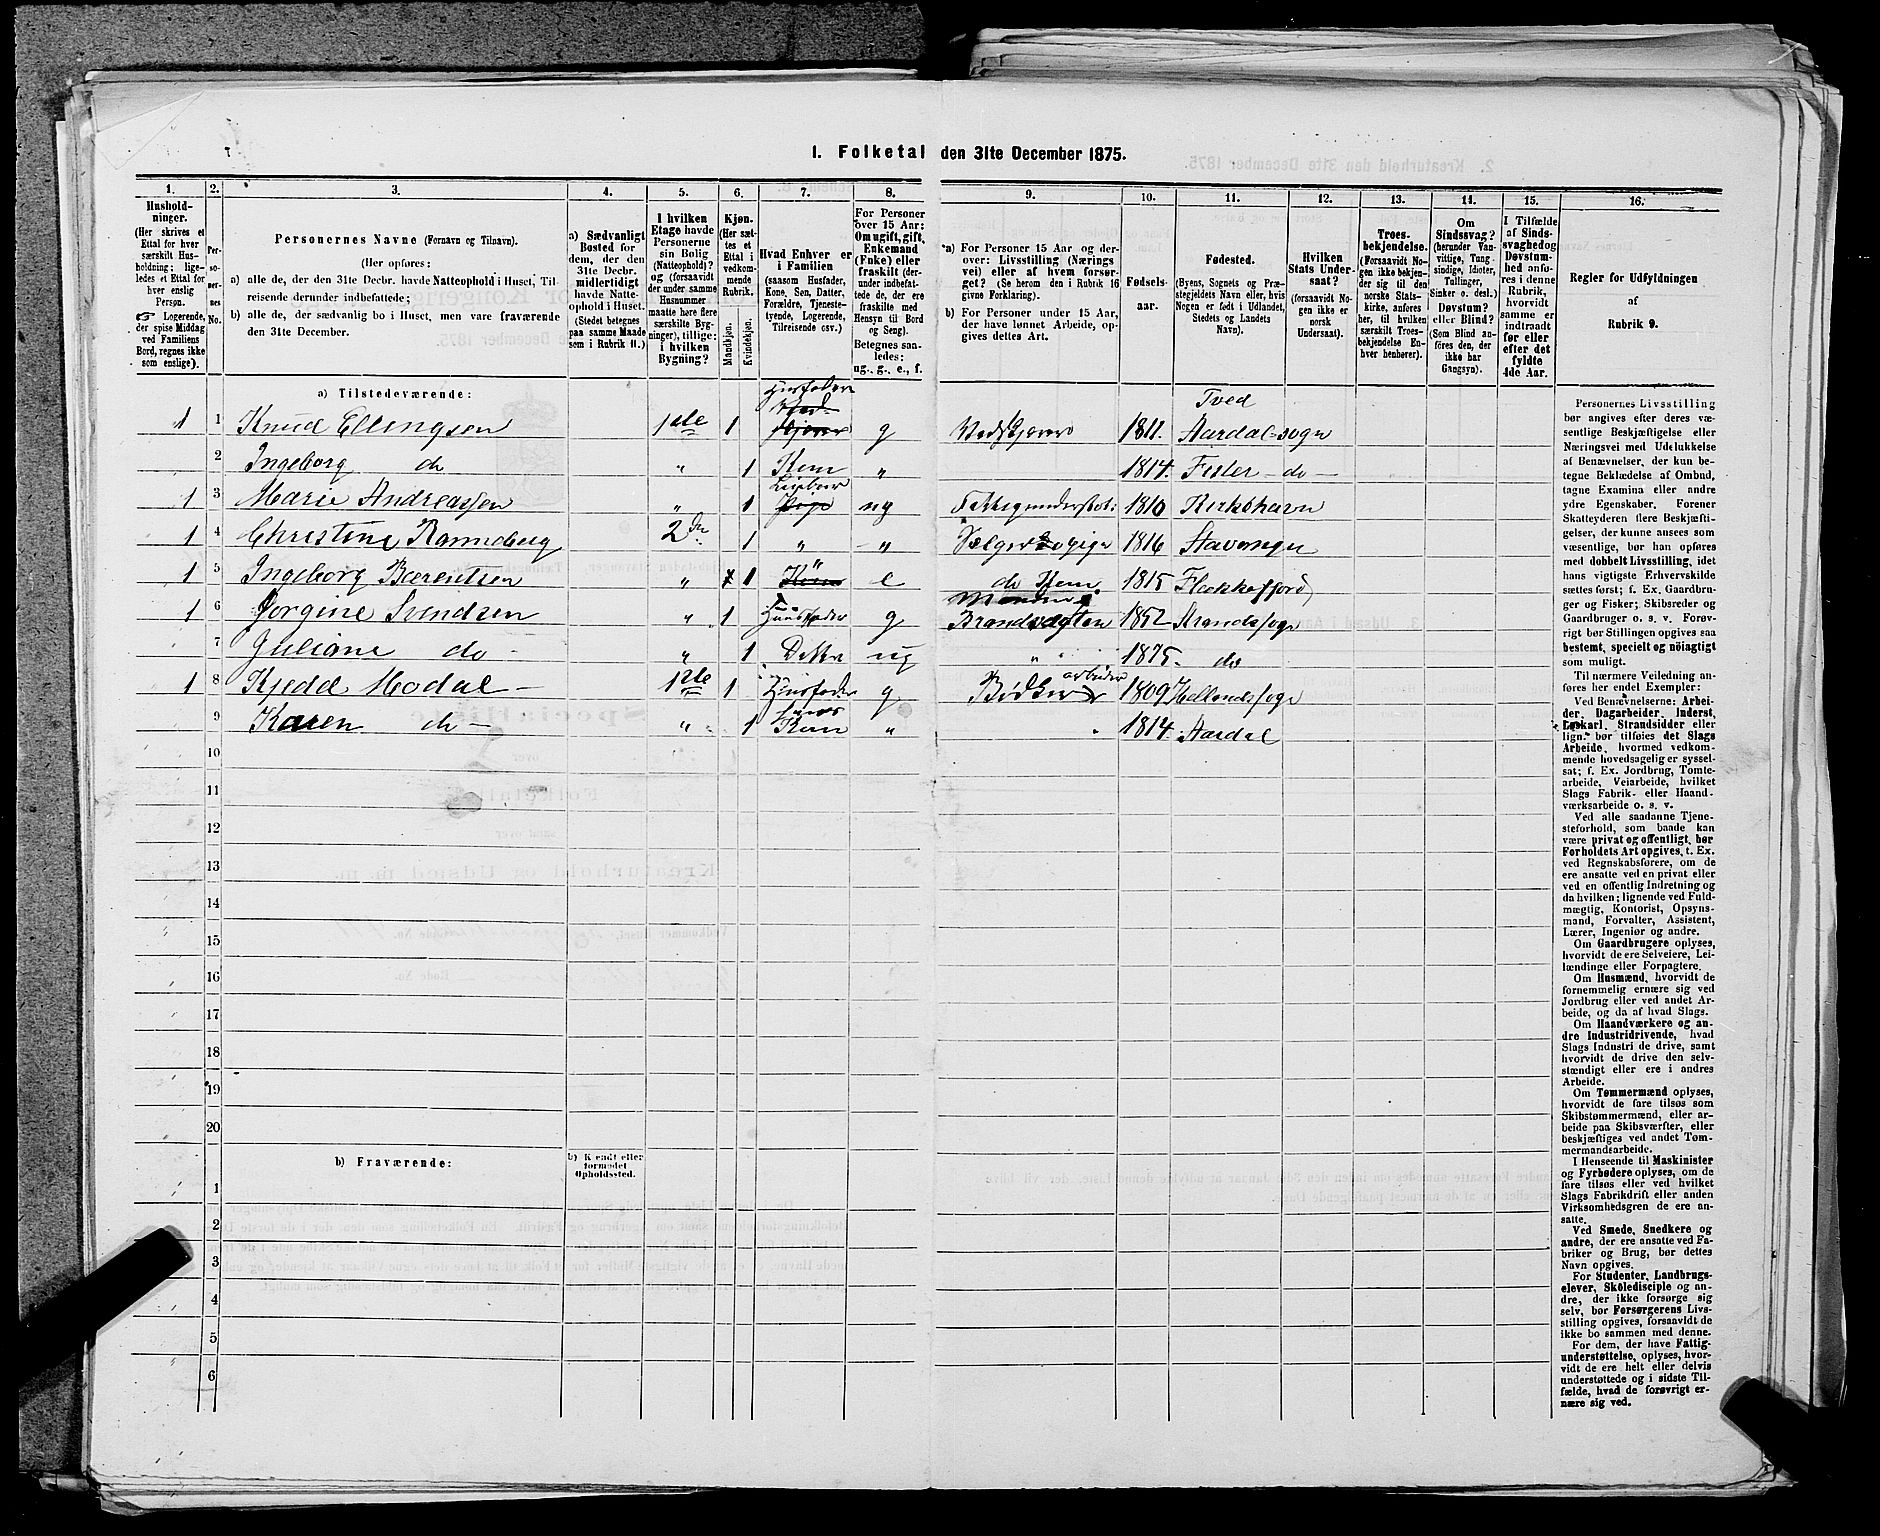 1. Folketal den 31te December 1875.
1. 2. 3. 4. 5. 6. 7. 8. 9. 10. 11. 12. 13. 14. 15. 16.
Husholdninger.
(Her skrives et
Ettal for hver
særskilt Husholdning;
ligeledes et Ettal for
hver enslig
Person.
Logerende,
der spise Middag
ved Familiens
Bord, regnes ikke
som enslige).
Personernes No.
Personernes Navne (Fornavn og Tilnavn).
(Her opføres:
a) alle de, der den 31te Decbr. havde Natteophold i Huset, Tilreisende derunder indbefattede;
b) alle de, der sædvanlig bo i Huset, men vare fraværende
den 31te December.
a) Sædvanligt
Bosted for
dem, der den
31te Decbr.
midlertidigt
havde Natteophold i Huset.
(Stedet betegnes
paa samme Maade
som i Rubrik 11.)
I hvilken
Etage havde
Personerne
sin Bolig
(Natteophold)?
og (forsaavidt
der under samme
Husnummer
maatte høre flere
særskilte Bygninger), tillige:
i hvilken
Bygning?
Kjøn.
(Her sættes et
Ettal i
vedkommende
Rubrik.
Mandkjøn.
Kvindekjøn.
Hvad Enhver er
i Familien
(saasom Husfader,
Kone, Søn, Datter,
Forældre, Tjenestetyende, Logerende,
Tilreisende osv.)
For Personer
over 15 Aar:
Om ugift, gift,
Enkemand
(Enke) eller
fraskilt (derunder indbefattede de, der ere
fraskilte med
Hensyn til Bord
og Seng).
Betegnes saaledes:
ug., g., e., f.
a) For Personer 15 Aar og derover: Livsstilling (Næringsvei) eller af hvem forsørget? (Se herom den i Rubrik 16
givne Forklaring).
b) For Personer under 15 Aar,
der have lønnet Arbeide, opgives dettes Art.
Fødselsaar.
Fødested.
(Byens, Sognets og Præstegjeldets Navn eller, hvis
Nogen er født i Udlandet,
Stedets og Landets
Navn).
Hvilken
Stats Undersaat?
(forsaavidt Nogen ikke er
norsk
Undersaat).
Troesbekjendelse.
(Forsaavidt Nogen ikke bekjender sig til den
norske Statskirke, anføres
her, til hvilken
særskilt Troesbekjendelse Enhver henhører).
Om
Sindssvag?
(herunder Vanvittige, Tungsindige, Idioter,
Tullinger,
Sinker o. desl.)
Døvstum?
eller Blind?
(Som Blind anføres den, der
ikke har
Gangsyn).
I Tilfælde
af Sindssvaghed og
Døvstumhed anføres i denne
Rubrik,
hvorvidt
samme er
indtraadt
før eller
efter det
fyldte
4de Aar.
Regler for Udfyldningen
af
Rubrik 9.
a) Tilstedeværende:
1 1 Knud Ellingsen 1ste 1 Husfader g 1811. Tved Aardal sogn
2 Ingeborg do „ 1 Kone „ 1814. Fister – do –
1 3 Marie Andreassen „ 1 Logerer ug Fattigunderstøt: 1810
1 4 Christine 2den 1 „ „ 1816 Stavanger
1 5 Ingeborg Bærentsen „ 1 „ e do 1815 Flekkefjord
1 6 Jørgine Svendsen „ 1 Husfader g Brandvagten 1852 Strandsogn
7 Juliane do – „ 1 Datter ug „ „ 1875. do
1 8 Kjedd Modal – 1ste 1 Husfader g Bødker arbeider 1809 Hellandssogn
9 Karen do – „ 1 Kone „ 1814. Aardal
10
11
12
13
14
15
16
17
18
19
20
b) Fraværende:
b) Kjendt eller
formodet
Opholdssted.
1
2
3
4
5
6
Personernes Livsstilling
bør angives efter deres væsentlige Beskjæftigelse eller
Næringsvei med Udelukkelse
af Benævnelser, der kun betegne Beklædelse af Ombud,
tagne Examina eller andre
ydre Egenskaber. Forener
Skatteyderen flere Beskjæftigelser, der kunne ansees som
væsentlige, bør han opføres
med dobbelt Livsstilling, idet
hans vigtigste Erhvervskilde
sættes først; f. Ex. Gaardbruger og Fisker; Skibsreder og
Gaardbruger o. s. v. Forøvrigt bør Stillingen opgives saa
bestemt, specielt og nöiagtigt
som muligt.
Til nærmere Veiledning anføres her endel Exempler:
Ved Benævnelserne: Arbeider, Dagarbeider, Inderst,
Løskarl, Strandsidder eller
lign. bør tilføies det Slags
Arbeide, hvormed vedkommende hovedsagelig er sysselsat; f. Ex. Jordbrug, Tomtearbeide, Veiarbeide, hvilket
Slags Fabrik- eller Haandværksarbeide o. s. v.
Ved alle saadanne Tjenesteforhold, som baade kan
være privat og offentligt, bør
Forholdets Art opgives, f. Ex.
ved Regnskabsførere, om de
ere ansatte ved en privat eller
ved en offentlig Indretning og
da hvilken; lignende ved Fuldmægtig, Kontorist, Opsynsmand, Forvalter, Assistent,
Lærer, Ingeniør og andre.
Om Gaardbrugere oplyses,
hvorvidt de ere Selveiere, Leilændinge eller Forpagtere.
Om Husmænd, hvorvidt de
fornemmelig ernære sig ved
Jordbrug eller ved andet Arbeide, og da af hvad Slags.
Om Haandværkere og andre Industridrivende, hvad
Slags Industri de drive, samt
hvorvidt de drive den selvstændigt eller ere i andres
Arbeide.
Om Tømmermænd oplyses,
hvorvidt de fare tilsøs som
Skibstømmermænd, eller arbeide paa Skibsværfter, eller
beskjæftiges ved andet Tømmermandsarbeide.
I Henseende til Maskinister
og Fyrbødere oplyses, om de
fare tilsøs eller ved hvilket
Slags Fabrikdrift eller anden
Virksomhedsgren de ere ansatte.
Ved Smede, Snedkere og
andre, der ere ansatte ved Fabriker og Brug, bør dettes
Navn opgives.
For Studenter, Landbrugselever, Skoledisciple og andre, der ikke forsørge sig
selv, bør Forsørgerens Livsstilling opgives, forsaavidt de
ikke bo sammen med denne.
For dem, der have Fattigunderstøttelse, oplyses, hvorvidt de ere helt eller delvis
understøttede og i sidste Tilfælde, hvad de forøvrigt ernære sig ved.